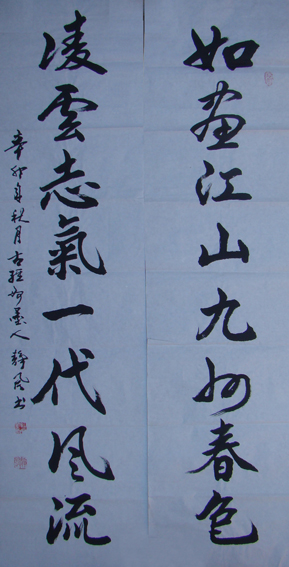 如画江山九州春色
凌雲志氣一代风流
辛卯年秋月古經州墨人静风书